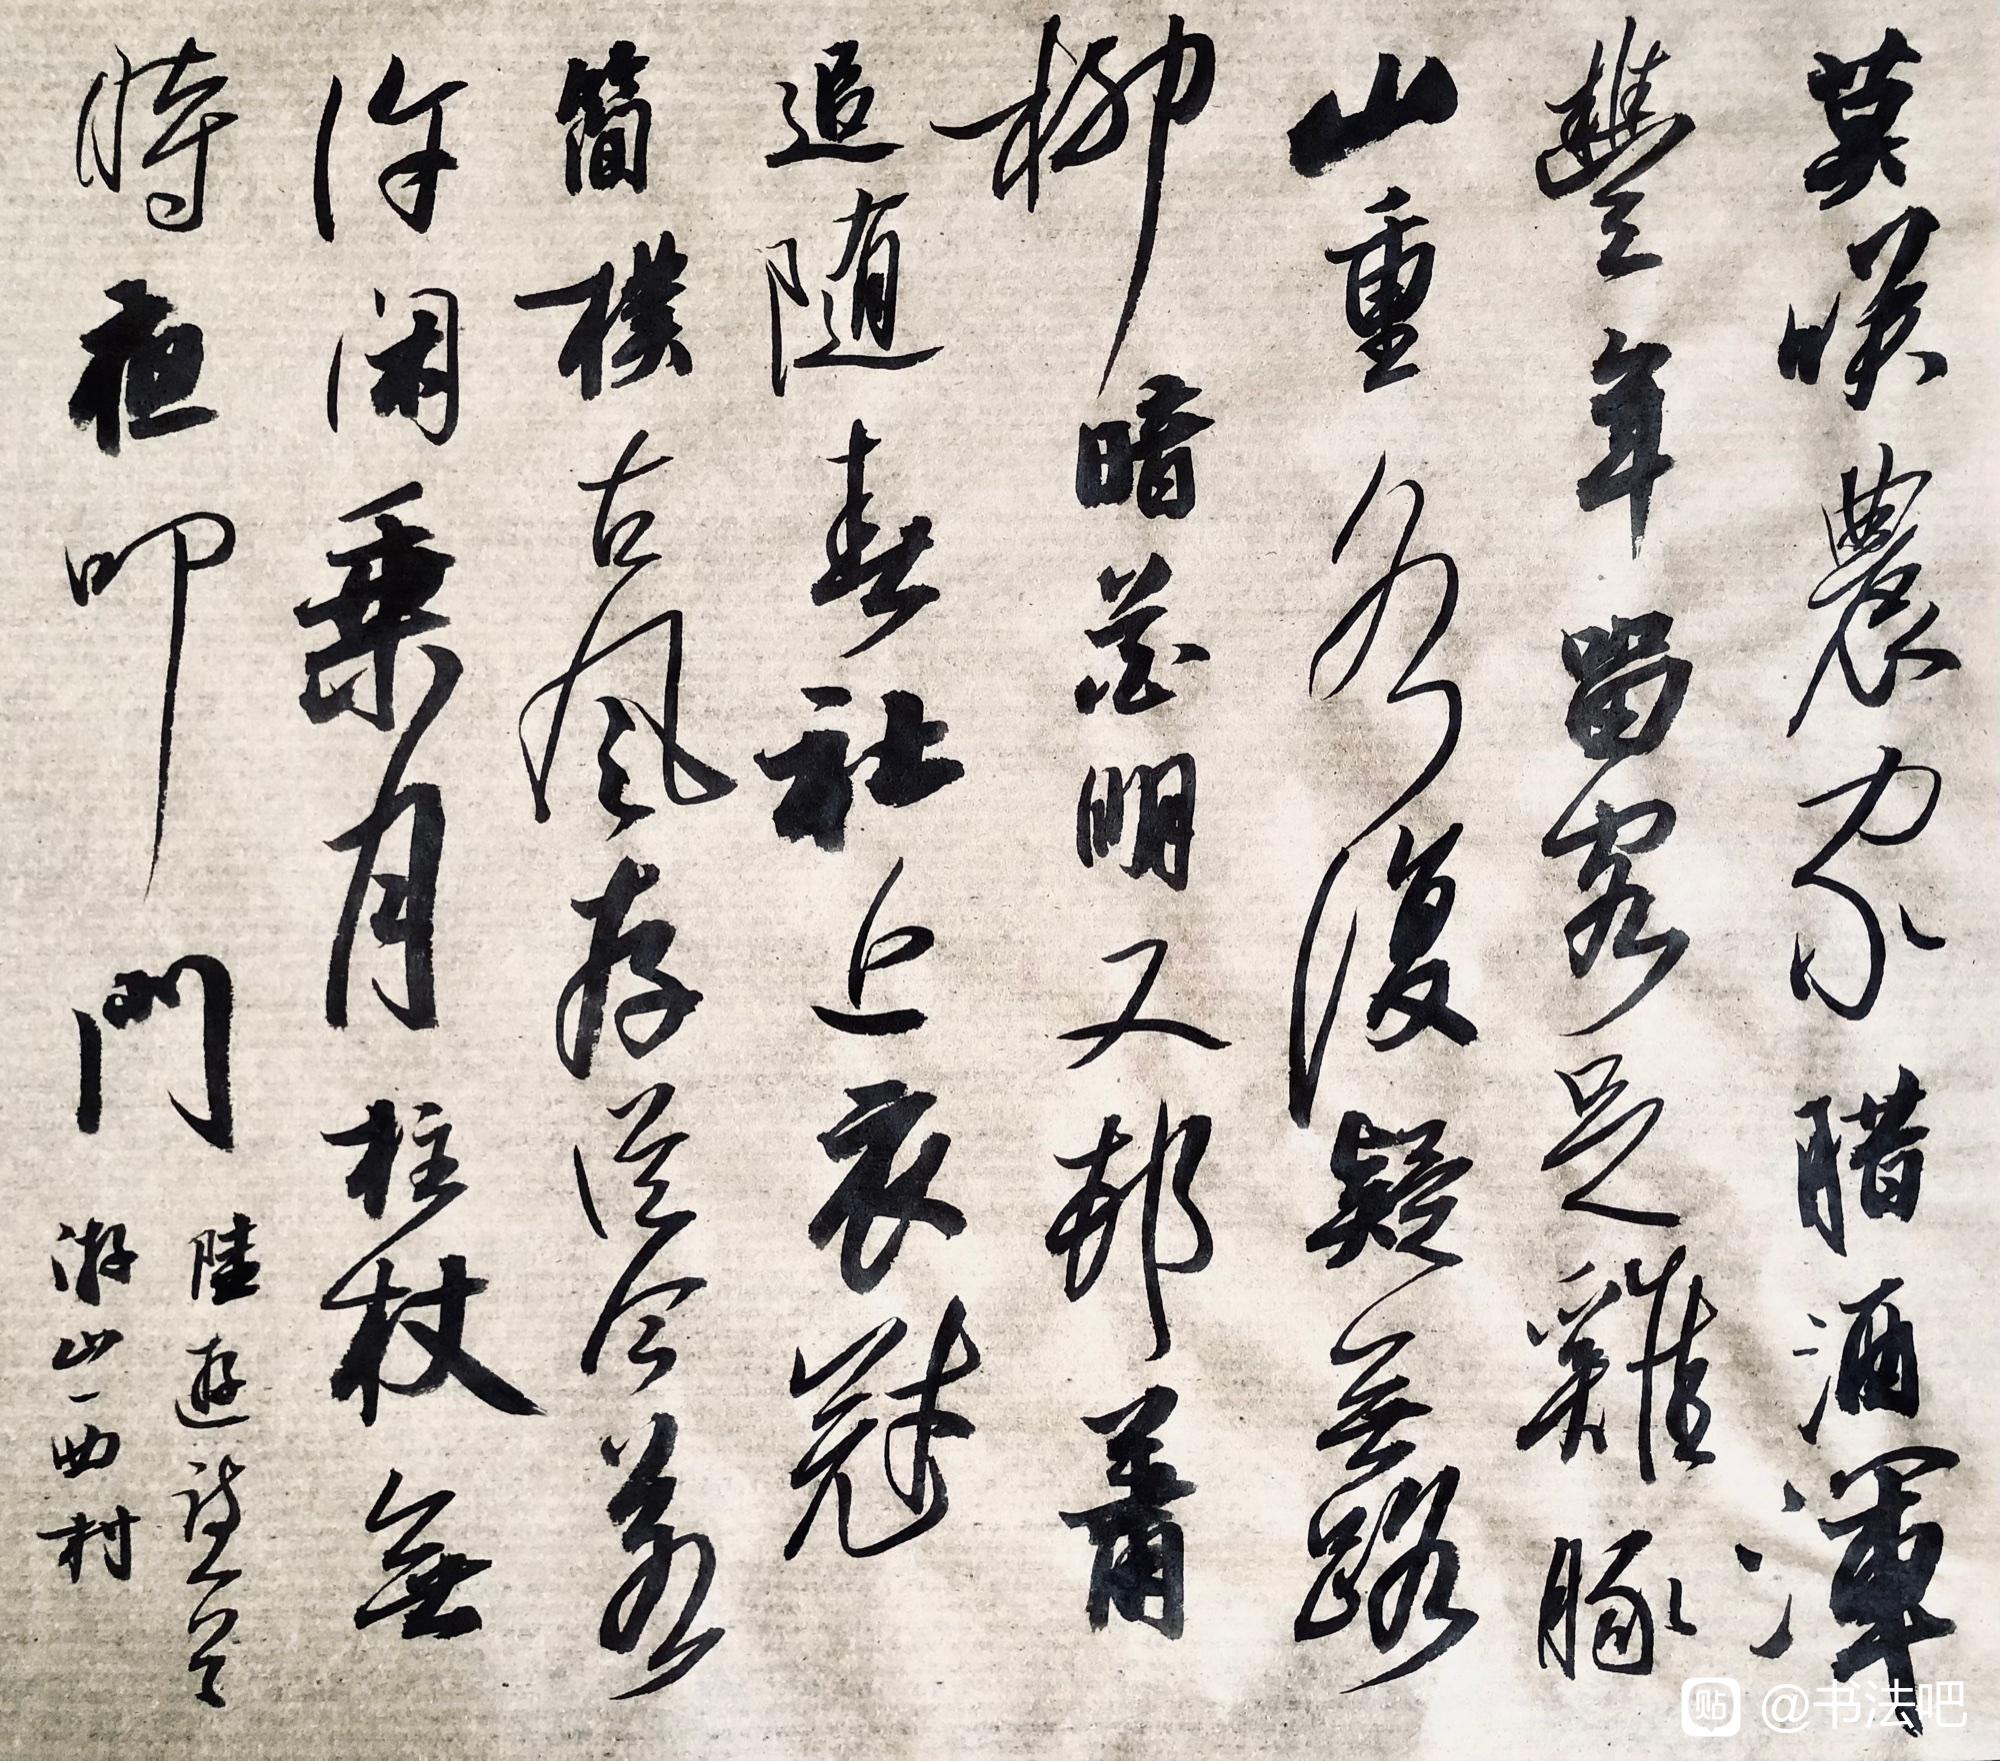 莫咲農家腊酒渾
豐年留客足雞豚
山重水復疑無路
柳暗花明又邨蕭
追随春社近衣冠
簡樸古風存從今若
許閑乘月柱杖無
時夜叩門
陸遊詩
游山西村
@书法吧